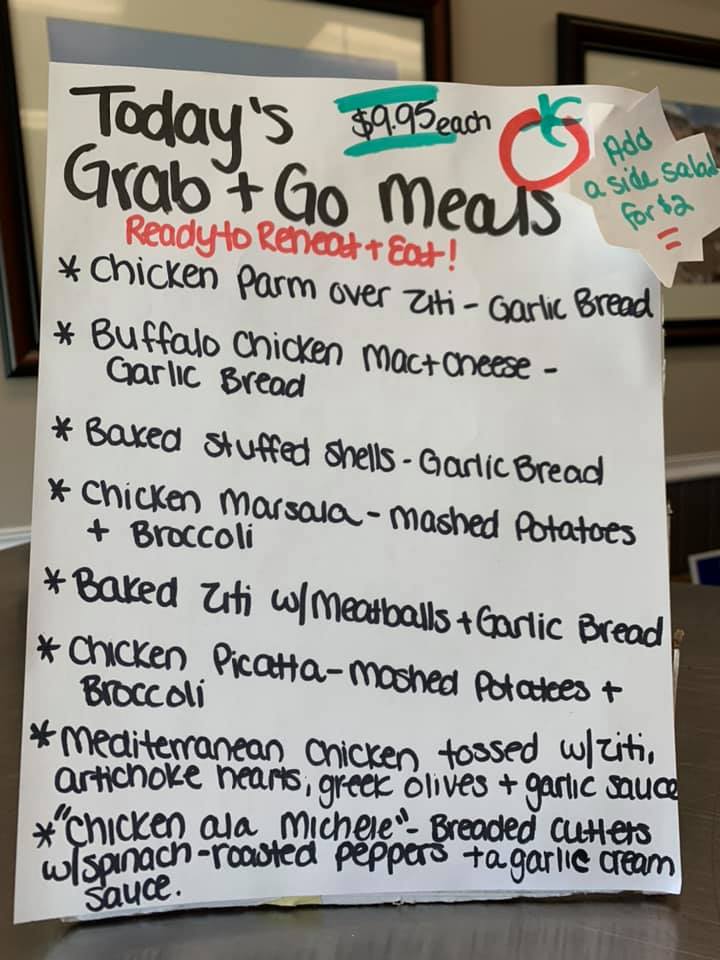 Today's $9.95 each
Grab + Go Meals
Add
a side salad
for $2
Ready to Reheat + Eat!
* Chicken Parm over Ziti - Garlic Bread
* Buffalo Chicken Mac + Cheese -
Garlic Bread
* Baked Stuffed Shells - Garlic Bread
* Chicken Marsala - Mashed Potatoes
+ Broccoli
* Baked Ziti w/Meatballs + Garlic Bread
* Chicken Picatta - Mashed Potatoes +
Broccoli
* Mediterranean Chicken tossed w/ziti,
artichoke hearts, greek olives + garlic sauce
* "Chicken ala Michele" - Breaded cutlets
w/spinach - roasted peppers + a garlic cream
sauce.